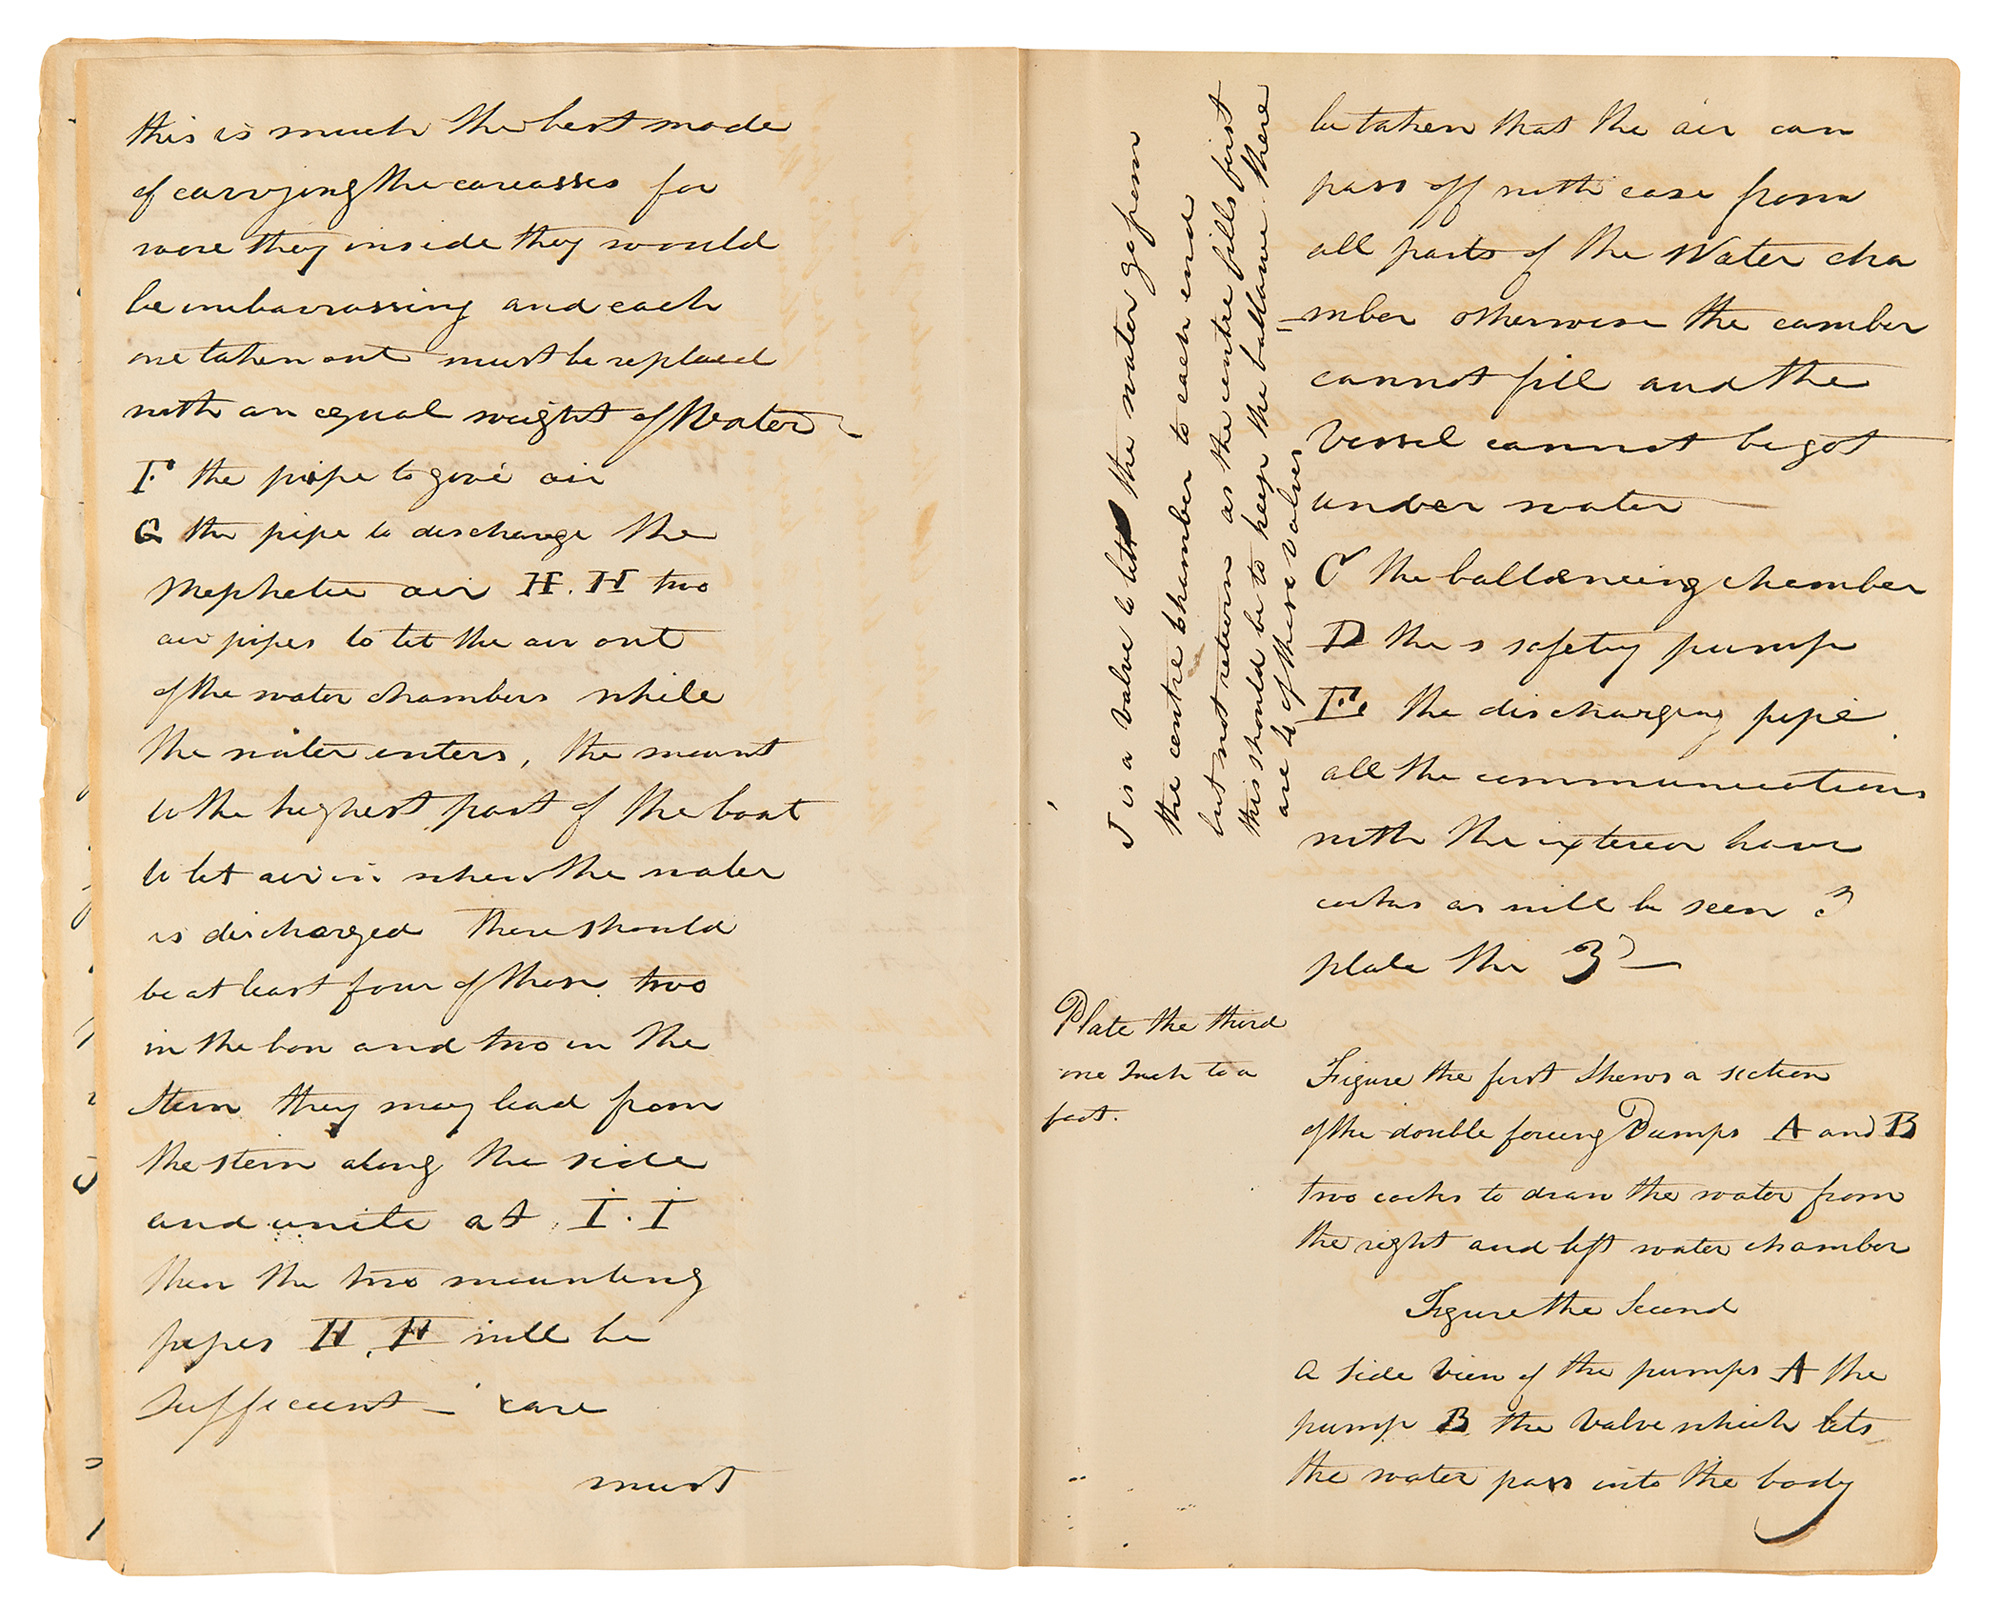 this is much the best mode
of carrying the carcasses for
were they inside they would
be imbarrassing and each
one taken out must be replaced
with an equal weight of Water
F the pipe to give air
G the pipe to discharge the
Mephetic air H. H two
air pipes to let the air out
of the water chambers while
the water enters, the mount
to the highest part of the boat
to let air in when the water
is discharged there should
be at least four of them. two
in the bow and two in the
stern they may lead from
the stern along the side
and unite at I. I
then the two mounting
pipes H. H will be
sufficient – care
must
J is a valve to let the water go from
the centre chamber to each end
but not return as the centre fills first
this should be to keep the ballance there
are 4 of these valves
be taken that the air can
pass off with ease from
all parts of the Water cha
mber otherwise the camber
cannot fill and the
Vessel cannot be got
under water —
C the ballancing chamber
D the s safety pump
E. the discharging pipe.
all the communications
with the exterior have
cocks as will be seen
plate the 3 —
Plate the third
one Inch to a
foot.
Figure the first Shews a section
of the double forcing Pumps A and B
two cocks to draw the water from
the right and left water chamber
Figure the Second
a side view of the pumps A the
pump B the Valve which lets
the water pass into the body